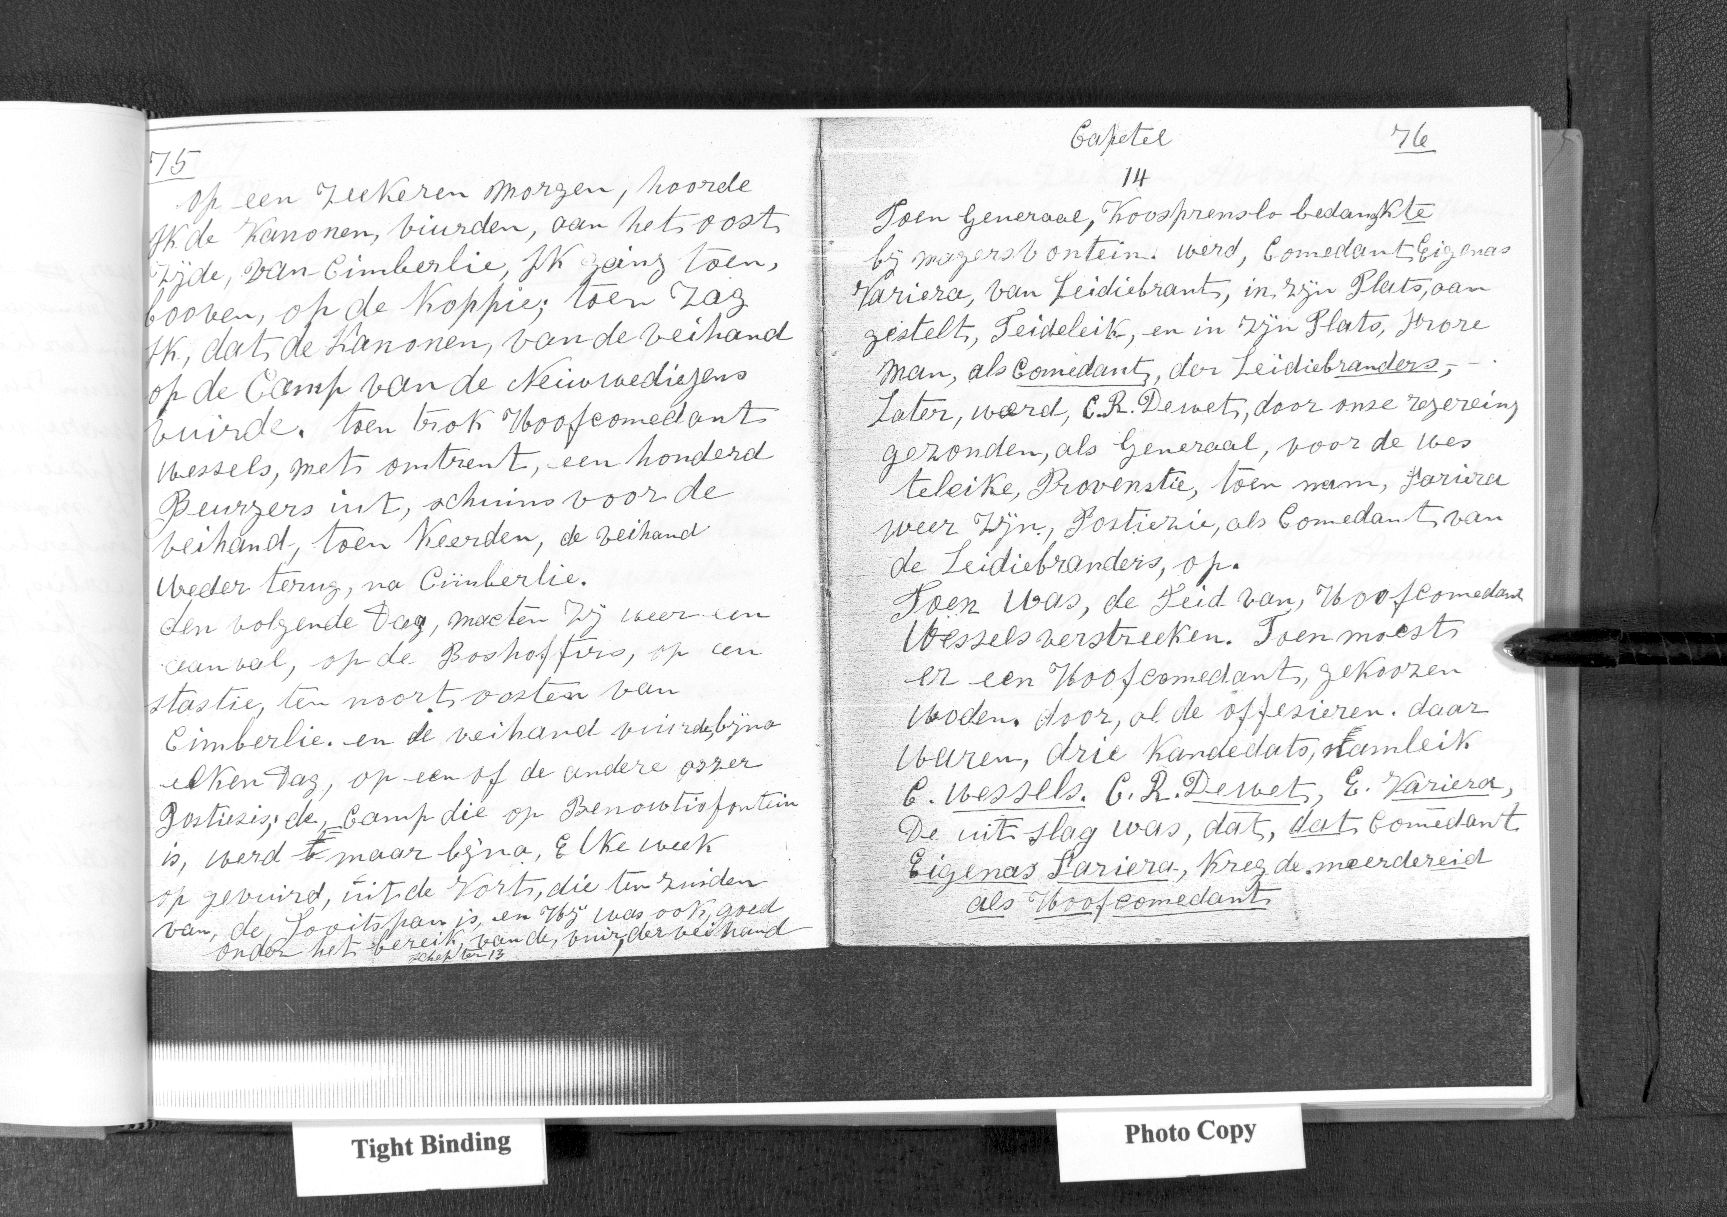 75
op een Zeekeren morgen, hoorde
Ik de Kanonen, viurden, aan het oost
Zyde, van Cimberlie, Ik ging toen,
booven, op de Koppie; toen Zag
Ik, dat de Kanonen, van de veihand
op de Camp van de Neiuwediegens
vuirde. toen trok Hoofcomedant
wessels, met omtrent, een honderd
Beurgers uit, schuins voor de
veihand, toen Keerden, de veihand
Weder terug, na Cimberlie.
den volgende Dag, macten Zy weer een
aanval, op de Boshoffers, op een
stastie, ten noort oosten van
Cimberlie. en de veihand vuirde, byna
elken Dag, op een of de andere onzer
Postiezis; de, Camp die op Benowtiefontein
is, werd maar byna, Elke week
op gevuird, uit de Vort, die ten zuiden
van, de, Sovitspan is, en Hy was ook, goed
onder het bereik, van de, vuir, der veihand
schepter 13
Capetel 76
14
Toen Generaal, Koosprenslo bedangkte
by magersvontein. werd, Comedant Eigenas
Variera, van Leidiebrant, in, zyn Plats, aan
gestelt, Teideleik, en in Zyn Plats, Hrore
man, als Comedant, der Leidiebranders, -
Later, werd, C.R. Dewet, door onse regereing
gezonden, als Generaal, voor de wes
teleike, Provenstie, toen nam, Fariera
weer Zyn, Postiezie, als Comedant van
de Leidiebranders, op.
Toen was, de Teid van, Hoofcomedant
Wessels verstreeken. Toen moest
er een Hoofcomedant, gekoozen
Woden. door, al de offesieren. daar
Waren, drie Kandedats, namleik
C. wessels. C.R. Dewet, E. Variera,
De uit slag was, dat, dat Comedant
Eigenas Fariera, Kreg de meerdereid
als Hoofcomedant
Tight Binding
Photo Copy